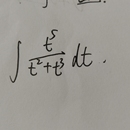 ∫ t⁵/(t²+t³) dt.